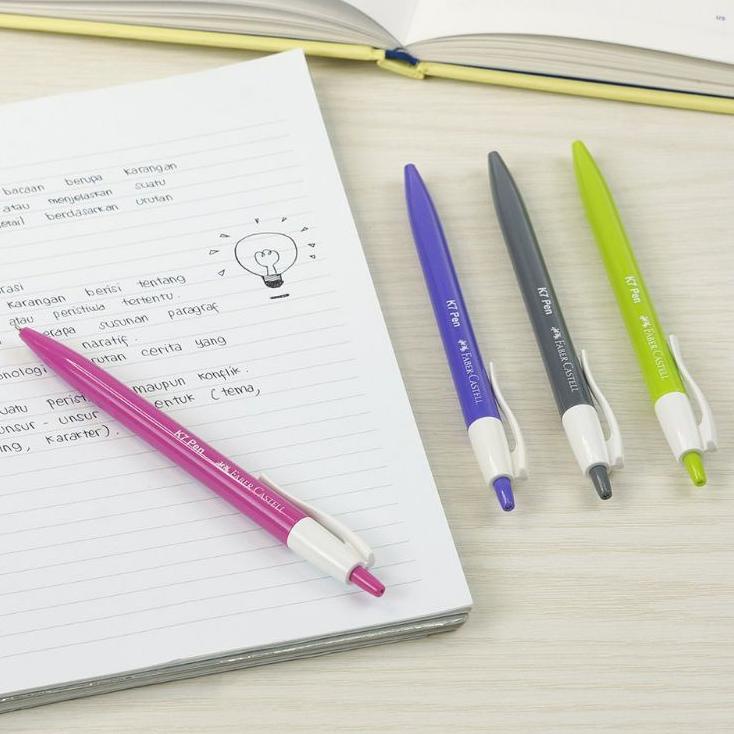 bacaan berupa karangan
atau menjelaskan suatu
berdasarkan urutan
karangan berisi tentang
atau peristiwa tertentu.
susunan paragraf
naratif.
cerita yang
maupun konflik.
(tema,
unsur - unsur
karakter).
K7 Pen FABER-CASTELL
K7 Pen FABER-CASTELL
K7 Pen FABER-CASTELL
K7 Pen FABER-CASTELL